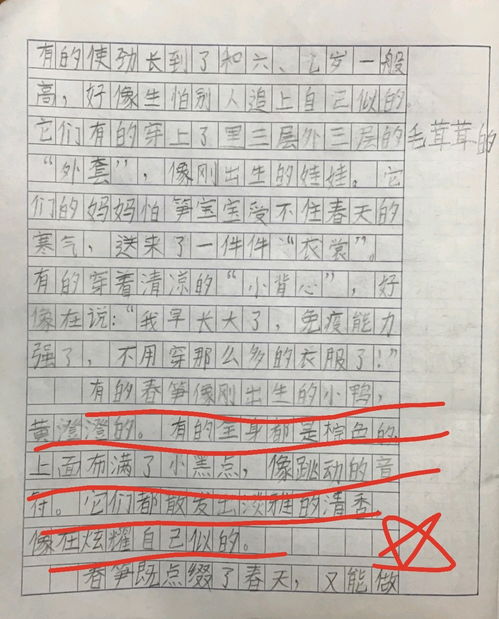 有的使劲长到了和六、七岁一般
高，好像生怕别人追上自己似的。
它们有的穿上了里三层外三层的毛茸茸的
“外套”，像刚出生的娃娃。它
们的妈妈怕笋宝宝受不住春天的
寒气，送来了一件件“衣裳”。
有的穿着清凉的“小背心”，好
像在说：“我早长大了，免疫能力
强了，不用穿那么多的衣服了！”
有的春笋像刚出生的小鸭，
黄澄澄的。有的全身都是棕色的，
上面布满了小黑点，像跳动的音
符。它们都散发出淡雅的清香，
像在炫耀自己似的。
春笋既点缀了春天，又能做